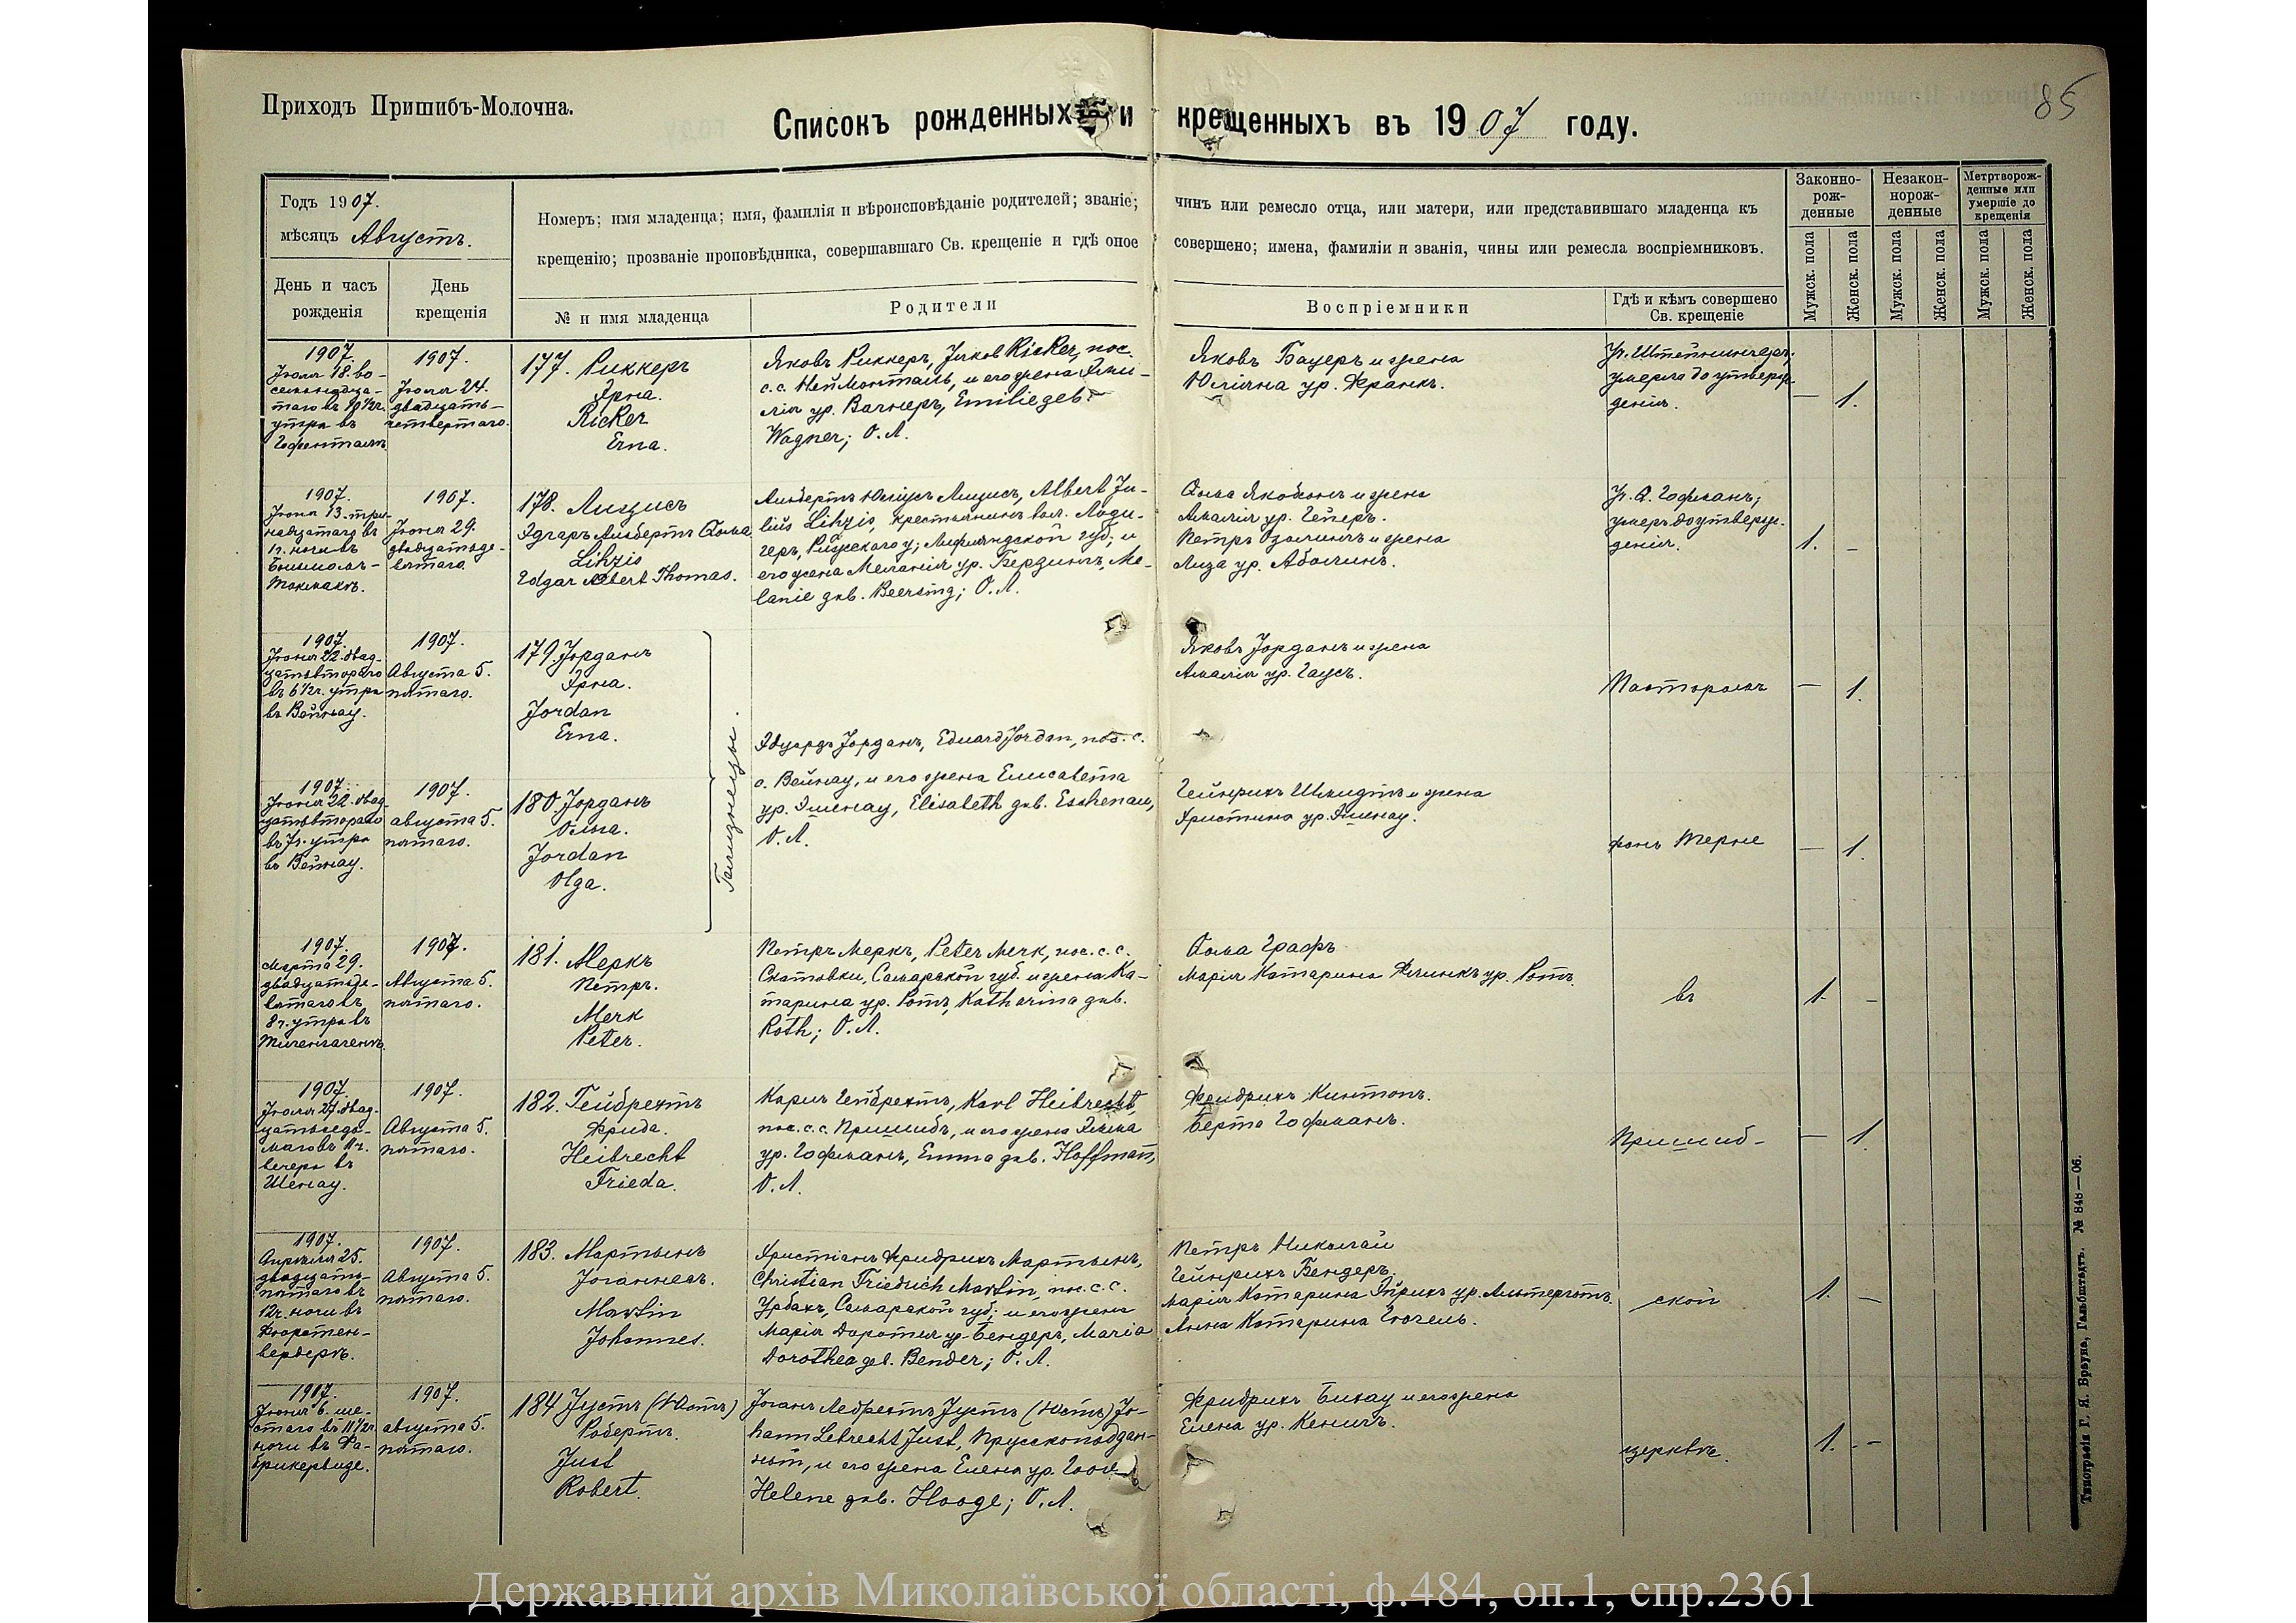 Приходъ Пришибъ-Молочна.
85
Списокъ рожденныхъ и крещенныхъ въ 1907 году.
Годъ 1907.
мѣсяцъ Августъ.
День и часъ рожденія
День крещенія
Номеръ; имя младенца; имя, фамилія и вѣроисповѣданіе родителей; званіе; чинъ или ремесло отца, или матери, или представившаго младенца къ
крещенію; прозваніе проповѣдника, совершавшаго Св. крещеніе и гдѣ оное совершено; имена, фамиліи и званія, чины или ремесла воспріемниковъ.
№ и имя младенца
Родители
Воспріемники
Гдѣ и кѣмъ совершено
Св. крещеніе
Законно-
рож-
денные
Незакон-
норож-
денные
Метртворож-
денные или
умершіе до
крещенія
Мужск. пола
Женск. пола
Мужск. пола
Женск. пола
Мужск. пола
Женск. пола
1907.
Іюля 18. во-
семнадца-
таго въ 10½ч.
утра въ
Гофенталѣ.
1907.
Іюля 24.
двадцать-
четвертаго.
177. Риккеръ
Эрна.
Ricker
Erna.
Яковъ Риккеръ, Jakob Ricker, пос.
с.с. Неймонталь, и его жена Эми-
лія ур. Вагнеръ, Emilie geb.
Wagner; О.Л.
Яковъ Бауеръ и жена
Юліана ур. Франкъ.
умерла до утверж-
денія.
— 1.
1907.
Іюня 13. три-
надцатаго въ
ч. ночи въ
Большомъ-
Токмакѣ.
1907.
Іюня 29.
двадцатаде-
вятаго.
178. Лицисъ
Эдгаръ Альбертъ Ѳома.
Lihzis
Edgar Albert Thomas.
Альбертъ Юліусъ Лицисъ, Albert Ju-
lius Lihzis, крестьянинъ вол. Лоди-
геръ, Рижскаго у; Лифляндской губ; и
его жена Меланія ур. Берзинъ, Me-
lanie geb. Beersing; О.Л.
Ѳома Якобсонъ и жена
Амалія ур. Гейеръ.
Петръ Озолинъ и жена
Лиза ур. Аболинъ.
Уч. А. Гофманъ;
умеръ до утверж-
денія.
1. –
1907.
Іюня 22. двад-
цатьвтораго
въ 6½ч. утра
въ Вейнау.
1907.
Августа 5.
пятаго.
179 Іорданъ
Эрна.
Jordan
Erna.
Яковъ Іорданъ и жена
Амалія ур. Гаусъ.
Пасторомъ
— 1.
Близнецы.
Эдуардъ Іорданъ, Eduard Jordan, пос. с.
с. Вейнау, и его жена Елисавета
ур. Эшенау, Elisabeth geb. Esshenau,
О.Л.
1907.
Іюня 22. двад-
цатьвтораго
въ 7ч. утра
въ Вейнау.
1907.
августа 5.
пятаго.
180 Іорданъ
Ольга.
Jordan
Olga.
Гейнрихъ Шмидтъ и жена
Христина ур. Эшенау.
фонъ Терне
— 1.
1907.
Марта 29.
двадцатьде-
вятаго въ
8ч. утра въ
Тигенгагенѣ.
1907.
Августа 5.
пятаго.
181. Меркъ
Петръ.
Merk
Peter.
Петръ Меркъ, Peter Merk, пос. с.с.
Скатовки, Самарской губ. и жена Ка-
тарина ур. Ротъ, Katharina geb.
Roth; О.Л.
Ѳома Графъ
Марія Катарина Флинкъ ур. Ротъ.
въ
1. –
1907.
Іюля 27. двад-
цатьседь-
маго въ 11ч.
вечера въ
Шенау.
1907.
Августа 5.
пятаго.
182. Гейбрехтъ
Фрида.
Heibrecht
Frieda.
Карлъ Гейбрехтъ, Karl Heibrecht,
пос. с.с. Пришибъ, и его жена Эмма
ур. Гофманъ, Emma geb. Hoffmann,
О.Л.
Фридрихъ Кинтопъ.
Берта Гофманъ.
Пришиб-
— 1.
1907.
Апрѣля 25.
двадцать-
пятаго въ
12ч. ночи въ
Фюрстен-
вердерѣ.
1907.
Августа 5.
пятаго.
183. Мартынъ
Іоганнесъ.
Martin
Johannes.
Христіанъ Фридрихъ Мартынъ,
Christian Friedrich Martin, пос. с.с.
Урбахъ, Самарской губ. и его жена
Марія Доротея ур. Бендеръ, Maria
Dorothea geb. Bender; О.Л.
Петръ Николай
Гейнрихъ Бендеръ.
Марія Катарина Эйрихъ ур. Альтерготъ.
Анна Катарина
ской
1. –
1907.
Іюня 6. ше-
стаго въ 11½ч.
ночи въ Фа-
брикервизе.
1907.
августа 5.
пятаго.
184 Іустъ (Юстъ)
Робертъ.
Just
Robert.
Іоганъ Лебрехтъ Іустъ (Юстъ) Jo-
hann Lebrecht Just, Прусскоподдан-
ный, и его жена Елена ур. Гооге
Helene geb. Hooge; О.Л.
Фридрихъ Бихау и его жена
Елена ур. Кенигъ.
церквѣ.
1. –
Типографія Г. Я. Брауна, Гальбштадтъ. № 848—06.
Державний архів Миколаївської області, ф.484, оп.1, спр.2361